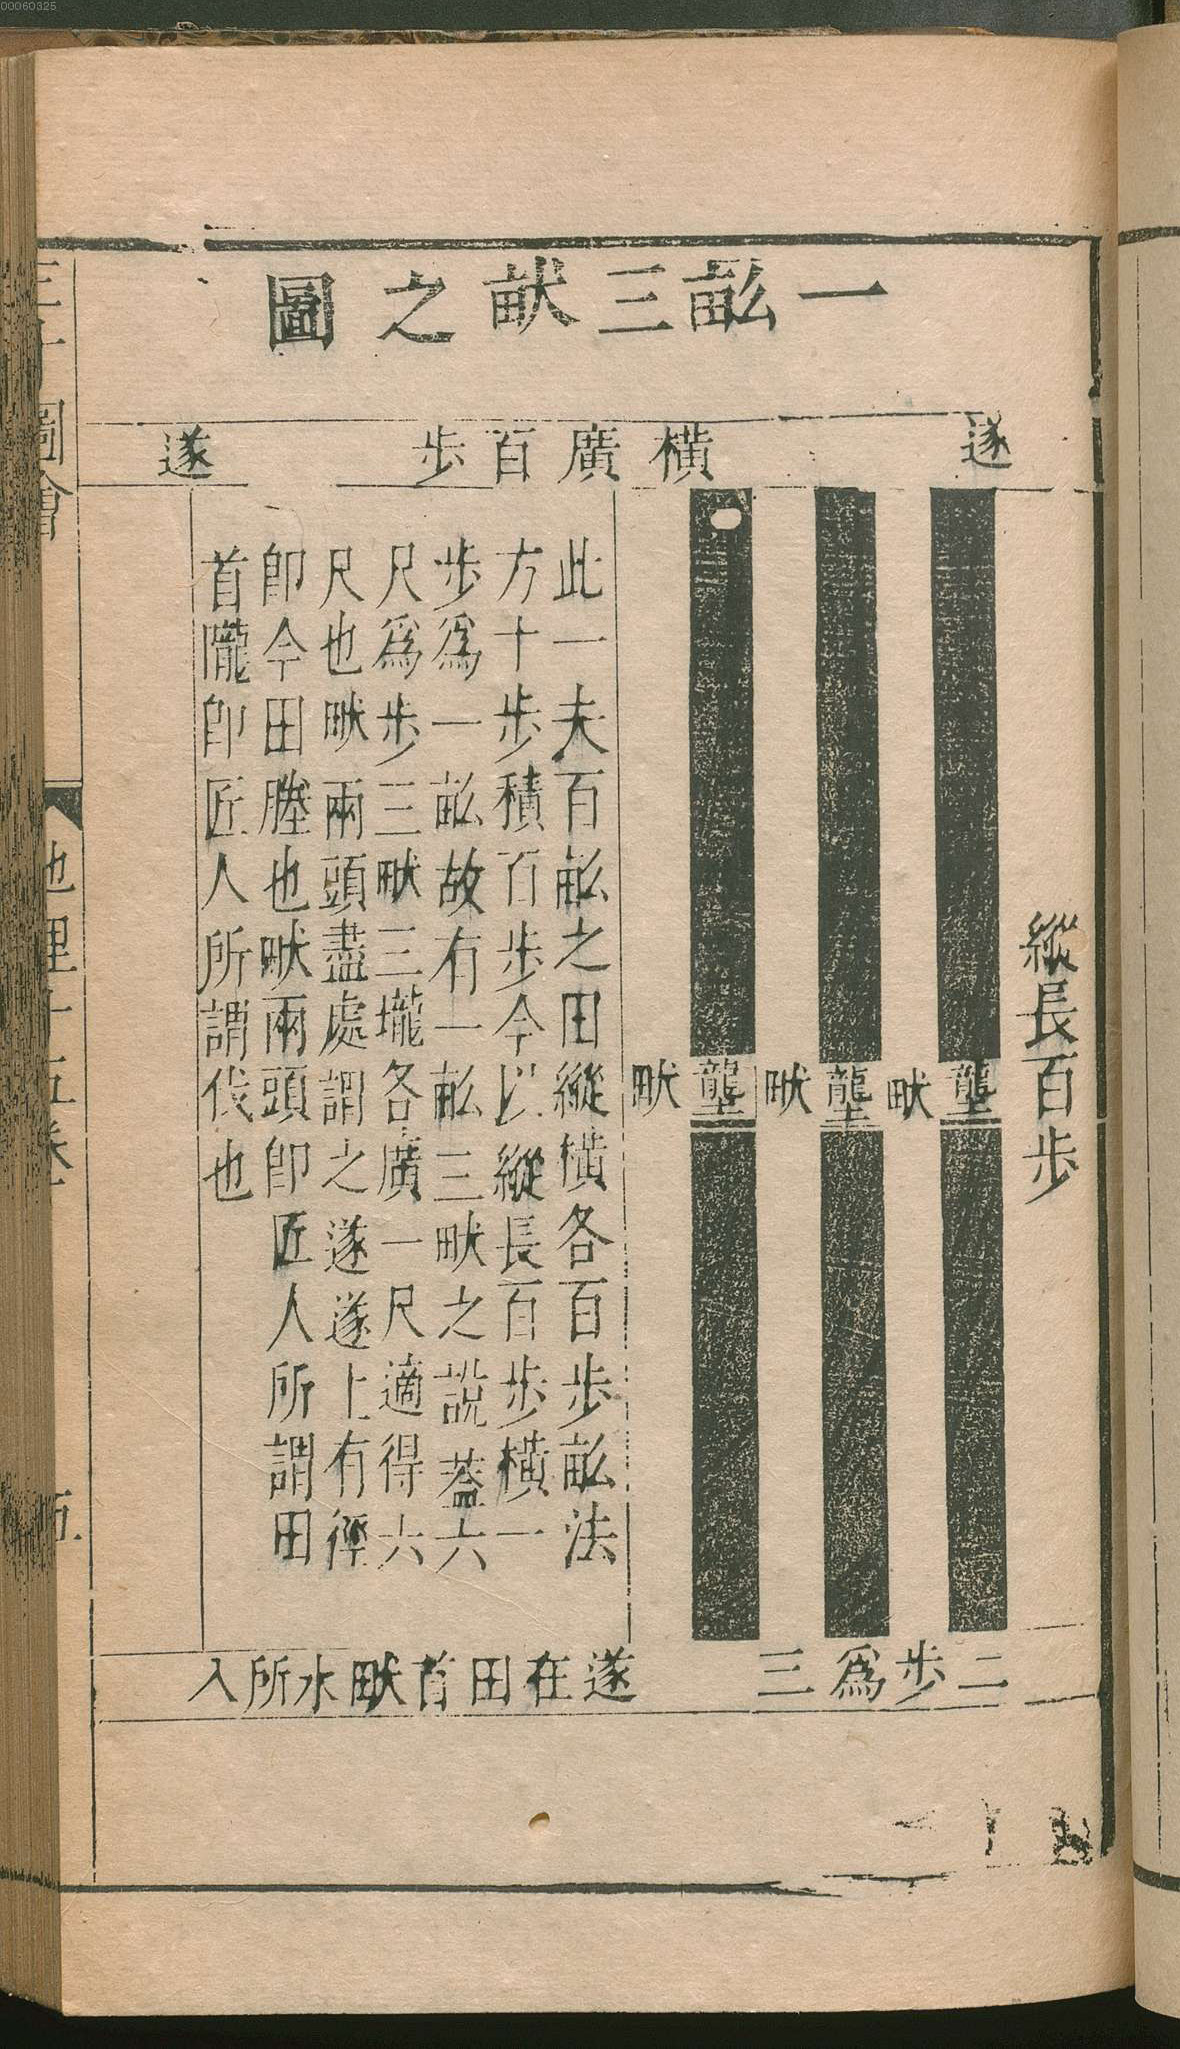 00060325
一畆三畎之圖
遂
橫廣百步
遂
縱長百步
壟
畎
壟
畎
壟
畎
此一夫百畆之田縱橫各百步畆法
方十步積百步今以縱長百步橫一
步爲一畆故有一畆三畎之說蓋六
尺爲步三畎三壠各廣一尺適得六
尺也畎兩頭盡處謂之遂遂上有徑
卽今田塍也畎兩頭卽匠人所謂田
首隴卽匠人所謂伐也
遂在田首畎水所入
三圖會
地理十五卷